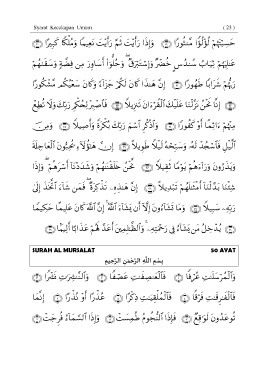 Syarat Kecakapan Umum ( 23 )
حَسِبْتَهُمْ لُؤْلُؤًا مَّنثُورًا ۝ وَإِذَا رَأَيْتَ ثَمَّ رَأَيْتَ نَعِيمًا وَمُلْكًا كَبِيرًا ۝
عَالِيَهُمْ ثِيَابُ سُندُسٍ خُضْرٌ وَإِسْتَبْرَقٌ ۖ وَحُلُّوا أَسَاوِرَ مِن فِضَّةٍ وَسَقَاهُمْ
رَبُّهُمْ شَرَابًا طَهُورًا ۝ إِنَّ هَٰذَا كَانَ لَكُمْ جَزَاءً وَكَانَ سَعْيُكُم مَّشْكُورًا
۝ إِنَّا نَحْنُ نَزَّلْنَا عَلَيْكَ الْقُرْآنَ تَنزِيلًا ۝ فَاصْبِرْ لِحُكْمِ رَبِّكَ وَلَا تُطِعْ
مِنْهُمْ آثِمًا أَوْ كَفُورًا ۝ وَاذْكُرِ اسْمَ رَبِّكَ بُكْرَةً وَأَصِيلًا ۝ وَمِنَ
اللَّيْلِ فَاسْجُدْ لَهُ وَسَبِّحْهُ لَيْلًا طَوِيلًا ۝ إِنَّ هَٰؤُلَاءِ يُحِبُّونَ الْعَاجِلَةَ
وَيَذَرُونَ وَرَاءَهُمْ يَوْمًا ثَقِيلًا ۝ نَّحْنُ خَلَقْنَاهُمْ وَشَدَدْنَا أَسْرَهُمْ ۖ وَإِذَا
شِئْنَا بَدَّلْنَا أَمْثَالَهُمْ تَبْدِيلًا ۝ إِنَّ هَٰذِهِ تَذْكِرَةٌ ۖ فَمَن شَاءَ اتَّخَذَ إِلَىٰ
رَبِّهِ سَبِيلًا ۝ وَمَا تَشَاءُونَ إِلَّا أَن يَشَاءَ اللَّهُ ۚ إِنَّ اللَّهَ كَانَ عَلِيمًا حَكِيمًا
۝ يُدْخِلُ مَن يَشَاءُ فِي رَحْمَتِهِ ۚ وَالظَّالِمِينَ أَعَدَّ لَهُمْ عَذَابًا أَلِيمًا ۝
SURAH AL MURSALAT 50 AYAT
بِسْمِ اللَّهِ الرَّحْمَٰنِ الرَّحِيمِ
وَالْمُرْسَلَاتِ عُرْفًا ۝ فَالْعَاصِفَاتِ عَصْفًا ۝ وَالنَّاشِرَاتِ نَشْرًا ۝
فَالْفَارِقَاتِ فَرْقًا ۝ فَالْمُلْقِيَاتِ ذِكْرًا ۝ عُذْرًا أَوْ نُذْرًا ۝ إِنَّمَا
تُوعَدُونَ لَوَاقِعٌ ۝ فَإِذَا النُّجُومُ طُمِسَتْ ۝ وَإِذَا السَّمَاءُ فُرِجَتْ ۝